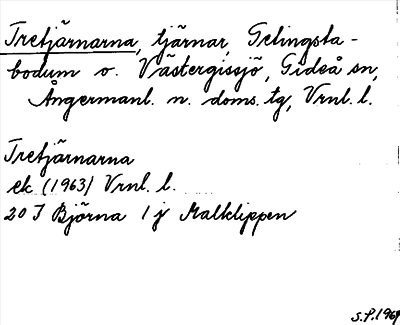 Tretjärnarna, tjärnar, Gelingsta-
bodum o. Västergissjö, Gideå sn,
Ångermanl. n. doms. tg, Vrnl. l.
Tretjärnarna
ek (1963) Vrnl. l.
20 I Björna 1 j Malklippen
S.P. 1969